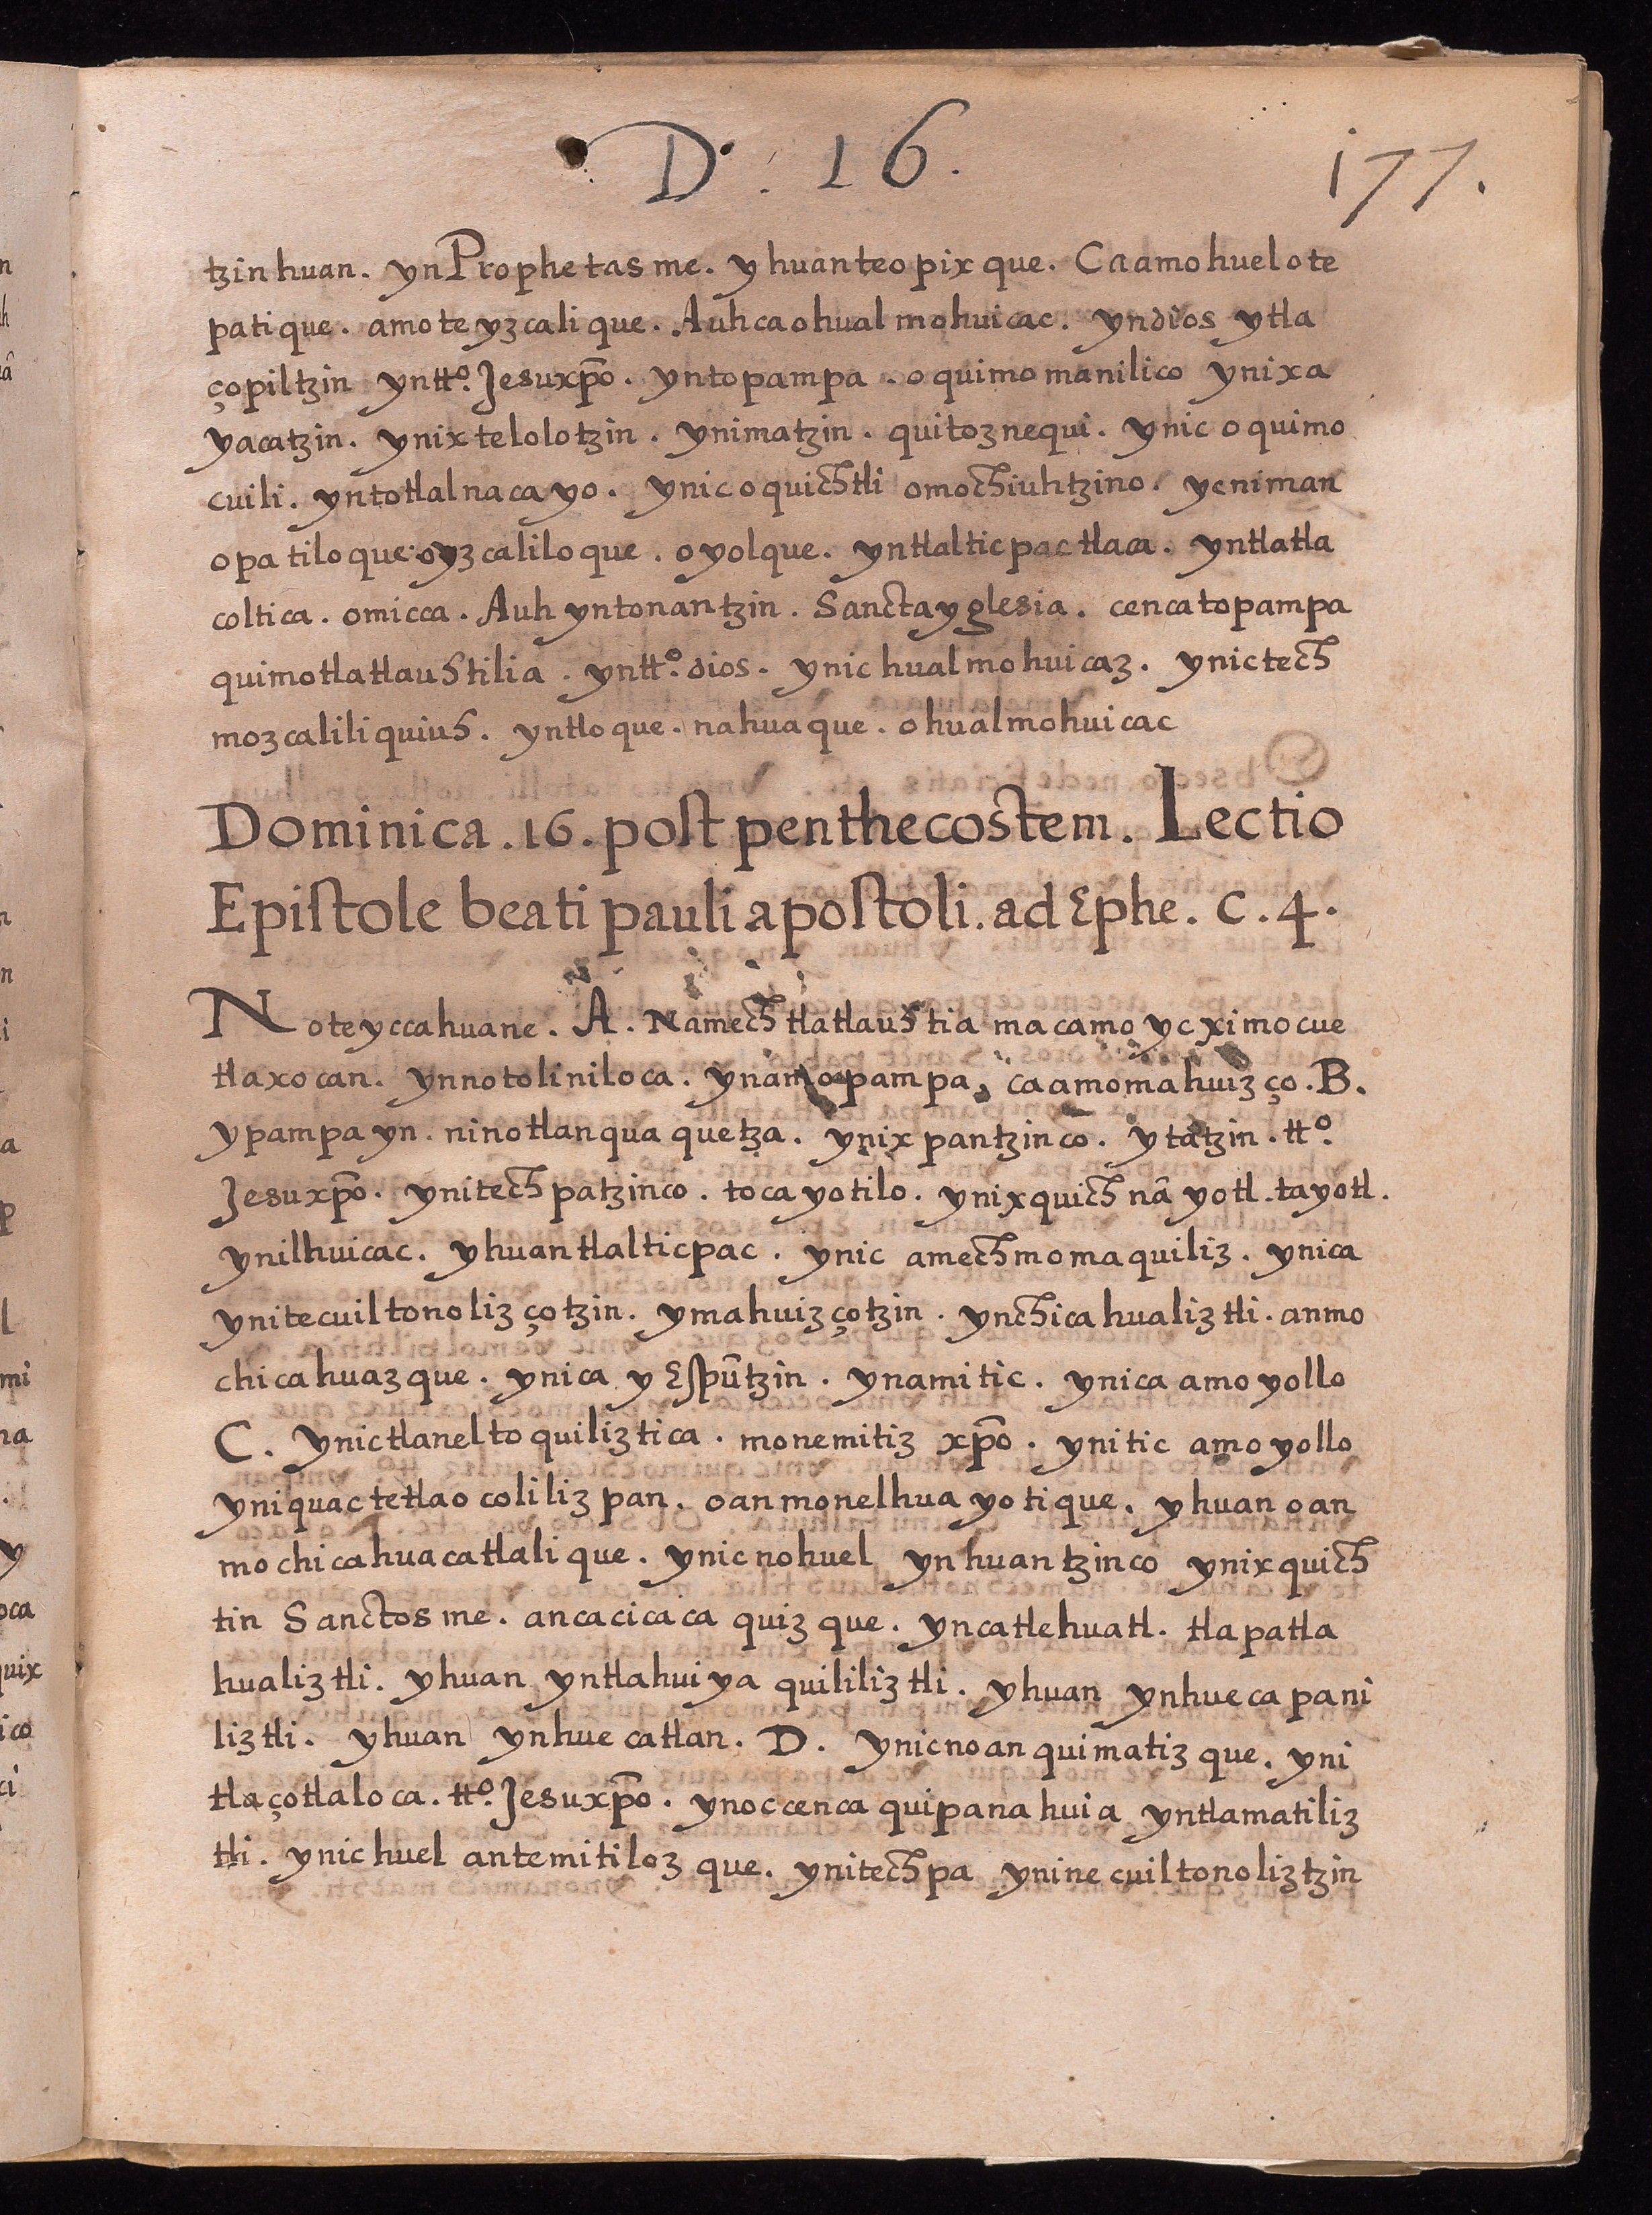 D. 16.
177.
tzinhuan. yn Prophetasme. yhuan teopixque. Ca amo huel ote
patique. amo teyzcalique. Auh ca ohualmohuicac. yn dios ytla
çopiltzin yn ttº. Jesu xp̄o. yn topampa. oquimomanilico ynixa
yacatzin. ynixtelolotzin. ynimatzin. quitoznequi. ynic oquimo
cuili. yn totlalnacayo. ynic oquichtli omochiuhtzino. yc niman
opatiloque. oyzcaliloque. oyolque. yn tlalticpac tlaca. yn tlatla
coltica. omicca. Auh yn tonantzin. Sancta yglesia. cenca topampa
quimotlatlauhtilia. yn ttº. dios. ynic hualmohuicaz. ynic tech
mozcaliliquiuh. yn tloque. nahuaque. ohualmohuicac
Dominica. 16. post penthecostem. Lectio
Epistole beati pauli apostoli. ad Ephe. C. 4.
Noteyccahuane. A. Namech tlatlauhtia macamo yc ximocue
tlaxocan. ynnotoliniloca. yn amopampa, ca amomahuizço. B.
ypampa yn. ninotlanquaquetza. ynixpantzinco. ytatzin. ttº.
Jesu xp̄o. ynitechpatzinco. tocayotilo. ynixquich nãyotl. tayotl.
ynilhuicac. yhuan tlalticpac. ynic amechmomaquiliz. ynica
ynitecuiltonolizçotzin. ymahuizçotzin. yn chicahualiztli. anmo
chicahuazque. ynica y Espūtzin. ynamitic. ynica amoyollo
C. Ynic tlaneltoquiliztica. monemitiz xp̄o. ynitic amoyollo
yniquac tetlaocolilizpan. oanmonelhuayotique. yhuan oan
mochicahuacatlalique. ynic no huel ynhuantzinco ynixquich
tin Sanctosme. ancacicacaquizque. yn catlehuatl. tlapatla
hualiztli. yhuan yn tlahuiyaquililiztli. yhuan yn huecapani
liztli. yhuan yn huecatlan. D. ynic no anquimatizque. yni
tlaçotlaloca. ttº. Jesu xp̄o. yn occenca quipanahuia yn tlamatiliz
tli. ynic huel antemitilozque. ynitechpa yninecuiltonoliztzin